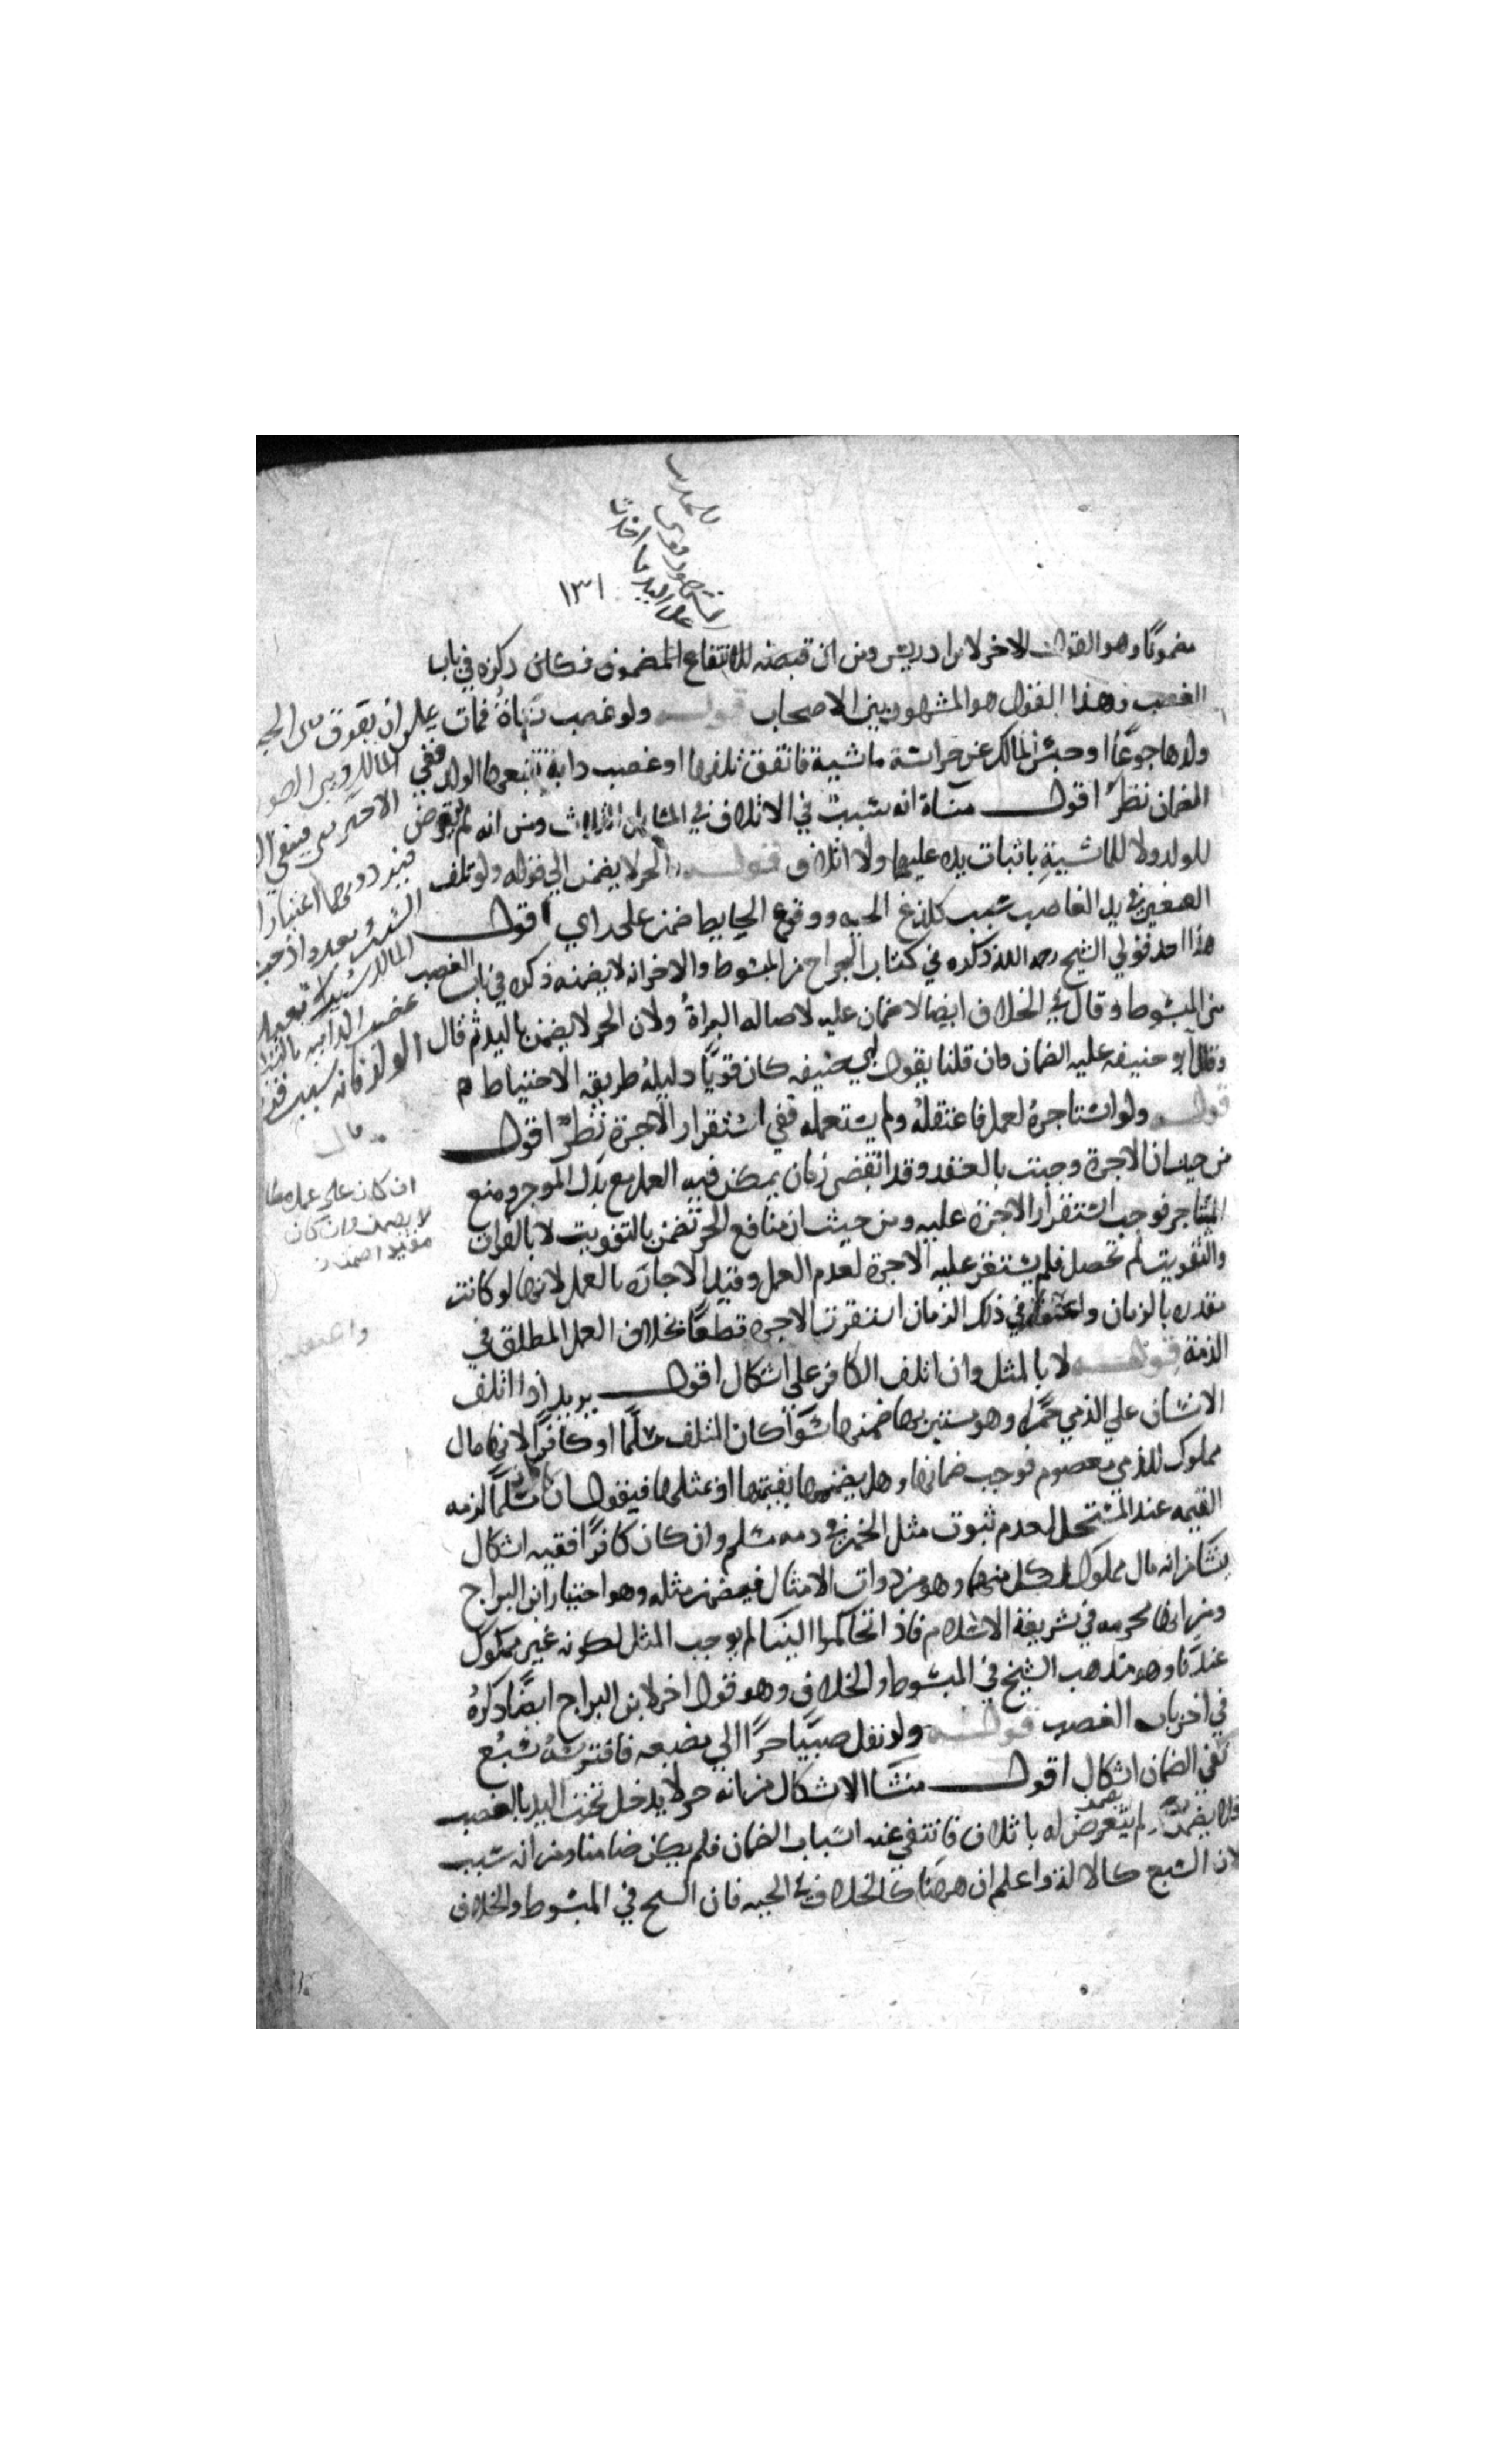 ١٣١
مضمونًا وهو القول الاخر لابن ادريس ومن ان قبضه للانتفاع المضمون فكان ذكره في باب
الغصب وهذا القول هو المشهور بين الاصحاب قوله ولو غصب شاةً فمات
ولدها جوعًا او حبس المالك عن حراسة ماشية فاتفق تلفها او غصب دابة فتبعها الولد ففي
الضمان نظرٌ اقول منشاه انه تسبيب في الاتلاف في المسايل الثلاث ومن انه لم يتعرض
للولد ولا للماشيةِ باثبات يده عليها ولا اتلاف قوله والحر لا يضمن الي قوله ولو تلف
الصغير في يد الغاصب بسبب كلدغ الحيه ووقوع الحايط ضمن على راي اقول
هذا احد قولي الشيخ رحمه الله ذكره في كتاب الجراح من المبسوط والاخر انه لا يضمنه ذكره في باب الغصب
من المبسوط وقال في الخلاف ايضا لا ضمان عليه لاصاله البراةُ ولان الحر لا يضمن باليد ثم قال
وقال ابو حنيفه عليه الضمان وان قلنا بقول ابي حنيفه كان قويًا ودليله طريقه الاحتياط م
قوله ولو استاجرهُ لعمل فاعتقلهُ ولم يستعمله ففي استقرار الاجرة نظرٌ اقول
من حيث ان الاجرة وجبت بالعقد وقد انقضى زمان يمكن فيه العمل مع بذل الموجر ومنع
المستاجر فوجب استقرار الاجرة عليه ومن حيث ان منافع الحر تضمن بالتفويت لا بالفوات
والتفويت لم تحصل فلم يستقر عليه الاجرة لعدم العمل وقيد الاجارة بالعمل لانها لو كانت
مقدره بالزمان واعتقله في ذلك الزمان استقرت الاجره قطعًا بخلاف العمل المطلق في
الذمة قوله لا بالمثل وان اتلف الكافر على اشكال اقول يريد اذا اتلف
الانسان علي الذمي خمرًا وهو مستتر بها ضمنها سوآ كان المتلف مسلمًا او كافرًا لانها مال
مملوك للذمي معصوم فوجب ضمانها وهل يضمنها بقيمتها او بمثلها فيقول ان كان مسلمًا لزمه
القيمه عند المستحل لعدم ثبوت مثل الخمر في ذمه مسلم وان كان كافرًا ففيه اشكال
ينشا من انه مال مملوك لكل منهما وهو من ذوات الامثال فيضمن مثله وهو اختيار ابن البراج
ومن انها محرمه في شريعة الاسلام فاذا تحاكموا الينا لم يوجب المثل لكونه غير مملوك
عندنا وهو مذهب الشيخ في المبسوط والخلاف وهو قول اخر لابن البراج ايضًا ذكرهُ
في اخر باب الغصب قوله ولو نقل صبيًا حرًا الي مضبعه فافترسهُ سَبُع
ففي الضمان اشكال اقول منشا الاشكال من انه حر لا يدخل تحت اليد بالغصب
فلا يضمن ولم يتعرض له باتلاف فانتفي عنه اسباب الضمان فلم يكن ضامنا ومن انه سبب
لان السبع كالالة واعلم ان ههنا كالخلاف في الحيه فان الشيخ في المبسوط والخلاف
ان كان على عمل
لا يضمن وان كان